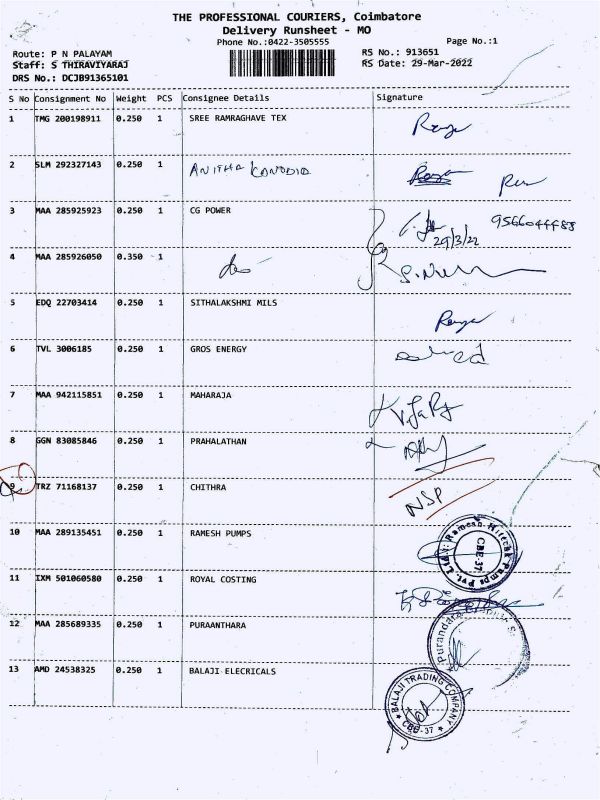 THE PROFESSIONAL COURIERS, Coimbatore
Delivery Runsheet - MO
Phone No.:0422-3505555
Page No.:1
Route: P N PALAYAM
RS No.: 913651
Staff: S THIRAVIYARAJ
RS Date: 29-Mar-2022
DRS No.: DCJB91365101
S No Consignment No Weight PCS Consignee Details Signature
1 TMG 200198911 0.250 1 SREE RAMRAGHAVE TEX
2 SLM 292327143 0.250 1 ANITHA KANODIA
3 MAA 285925923 0.250 1 CG POWER
29/3/22
4 MAA 285926050 0.350 1
5 EDQ 22703414 0.250 1 SITHALAKSHMI MILS
6 TVL 3006185 0.250 1 GROS ENERGY
7 MAA 942115851 0.250 1 MAHARAJA
8 GGN 83085846 0.250 1 PRAHALATHAN
9 TRZ 71168137 0.250 1 CHITHRA NSP
10 MAA 289135451 0.250 1 RAMESH PUMPS
Ramesh Hitechk Pumps Pvt. Ltd.
CBE-37
11 IXM 501060580 0.250 1 ROYAL COSTING
12 MAA 285689335 0.250 1 PURAANTHARA
13 AMD 24538325 0.250 1 BALAJI ELECRICALS
BALAJI TRADING COMPANY
CBE-37